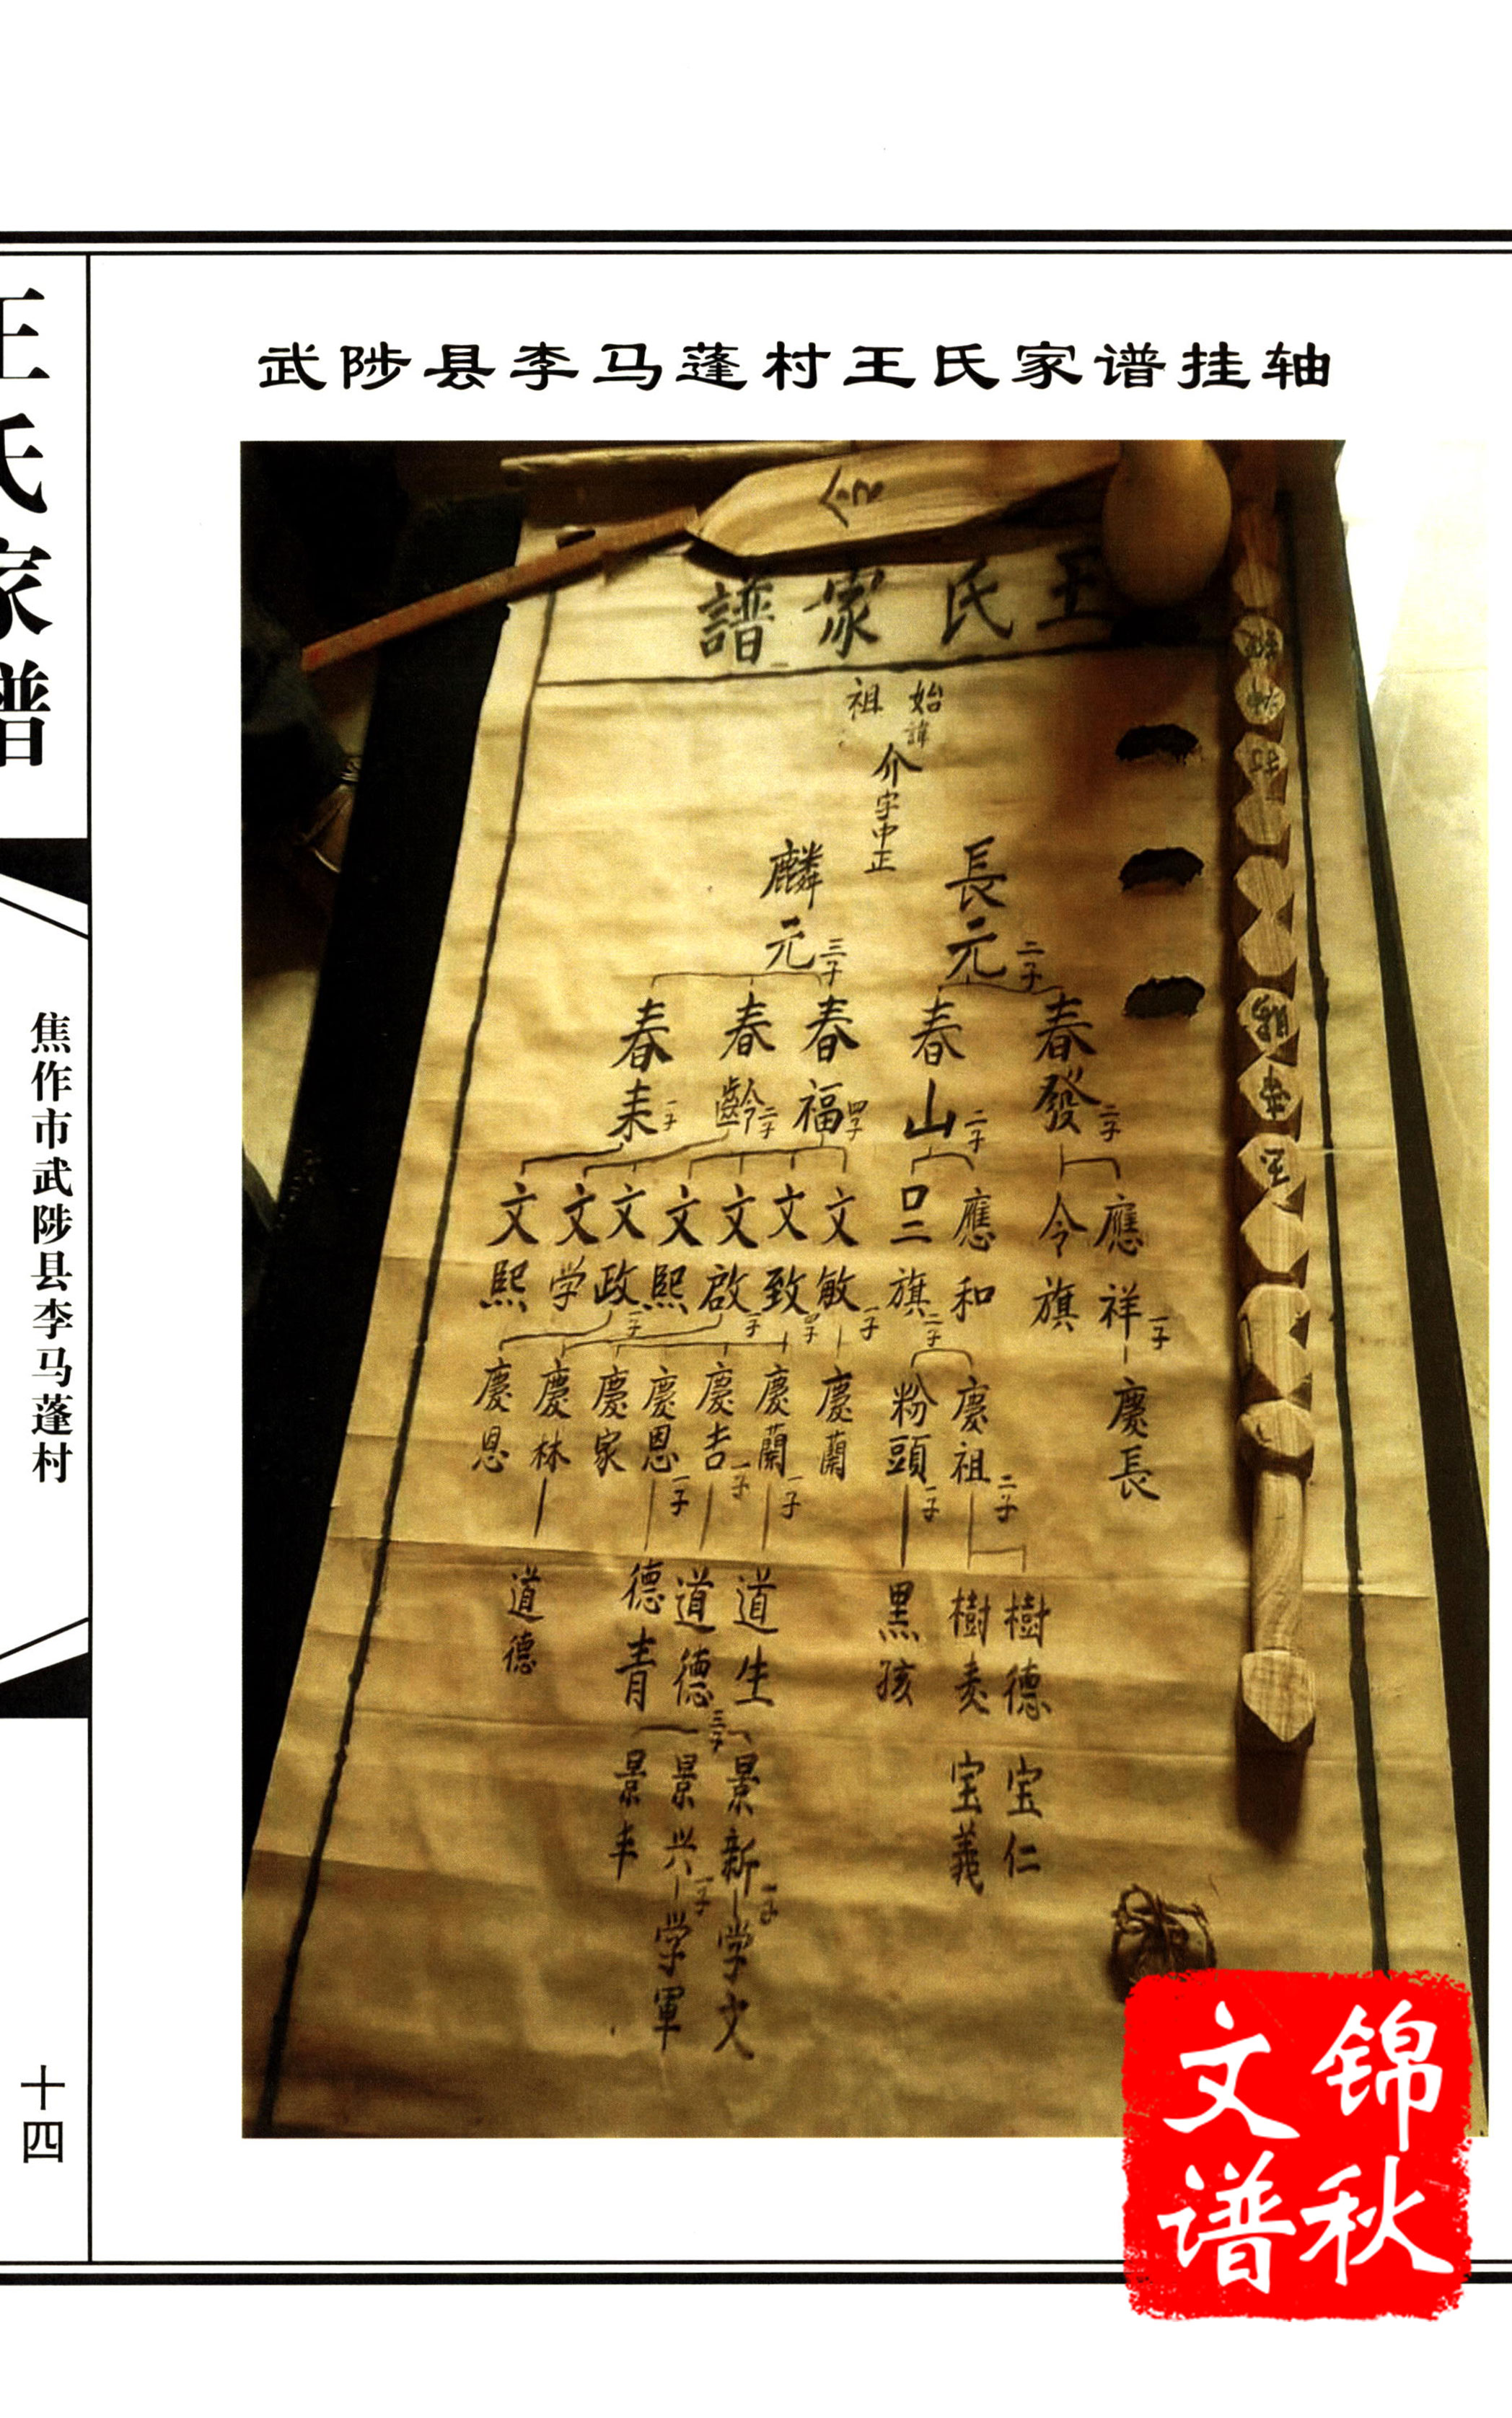 武陟县李马蓬村王氏家谱挂轴
王氏家谱
焦作市武陟县李马蓬村
十四
王氏家譜
始祖
諱
介字中正
長元 二子
麟元 三子
春發 二子
春山 二子
春福 四子
春齡 二子
春来 一子
應祥 一子
令旗
應和
二旗 二子
文敏 一子
文致 四子
文啟
文熙
文政
文学
文熙
慶長
慶祖 二子
粉頭 一子
慶蘭
慶蘭 一子
慶吉 一子
慶恩 一子
慶家
慶林
慶恩
樹德
樹
黑孩
道生
道德
德青
道德
三子
宝仁
宝義
景新 一子
景兴 一子
景丰
学文
学軍
锦秋
文谱